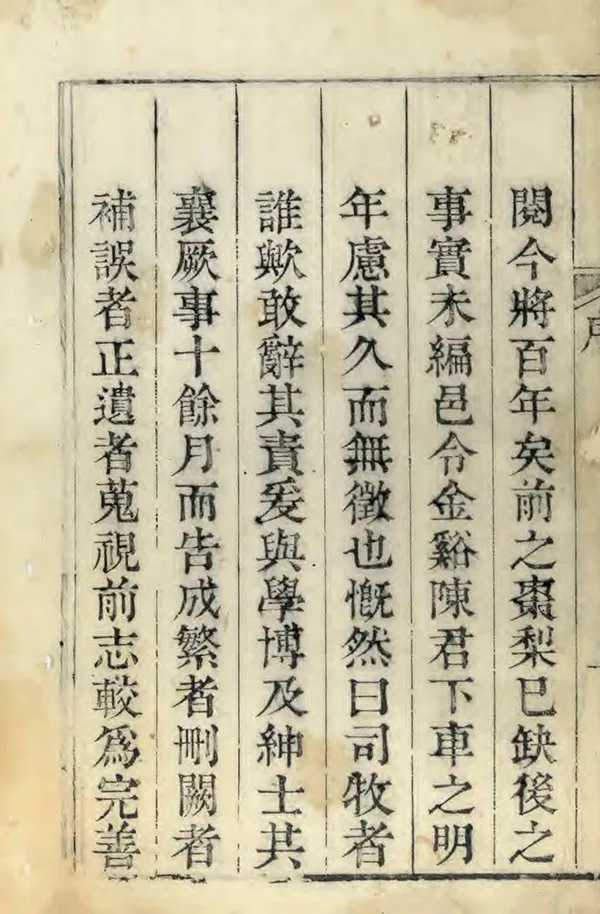 閱今將百年矣前之棗梨已缺後之
事實未編邑令金谿陳君下車之明
年慮其久而無徵也慨然曰司牧者
誰歟敢辭其責爰與學博及紳士其
襄厥事十餘月而告成繁者刪闕者
補誤者正遺者蒐視前志較爲完善